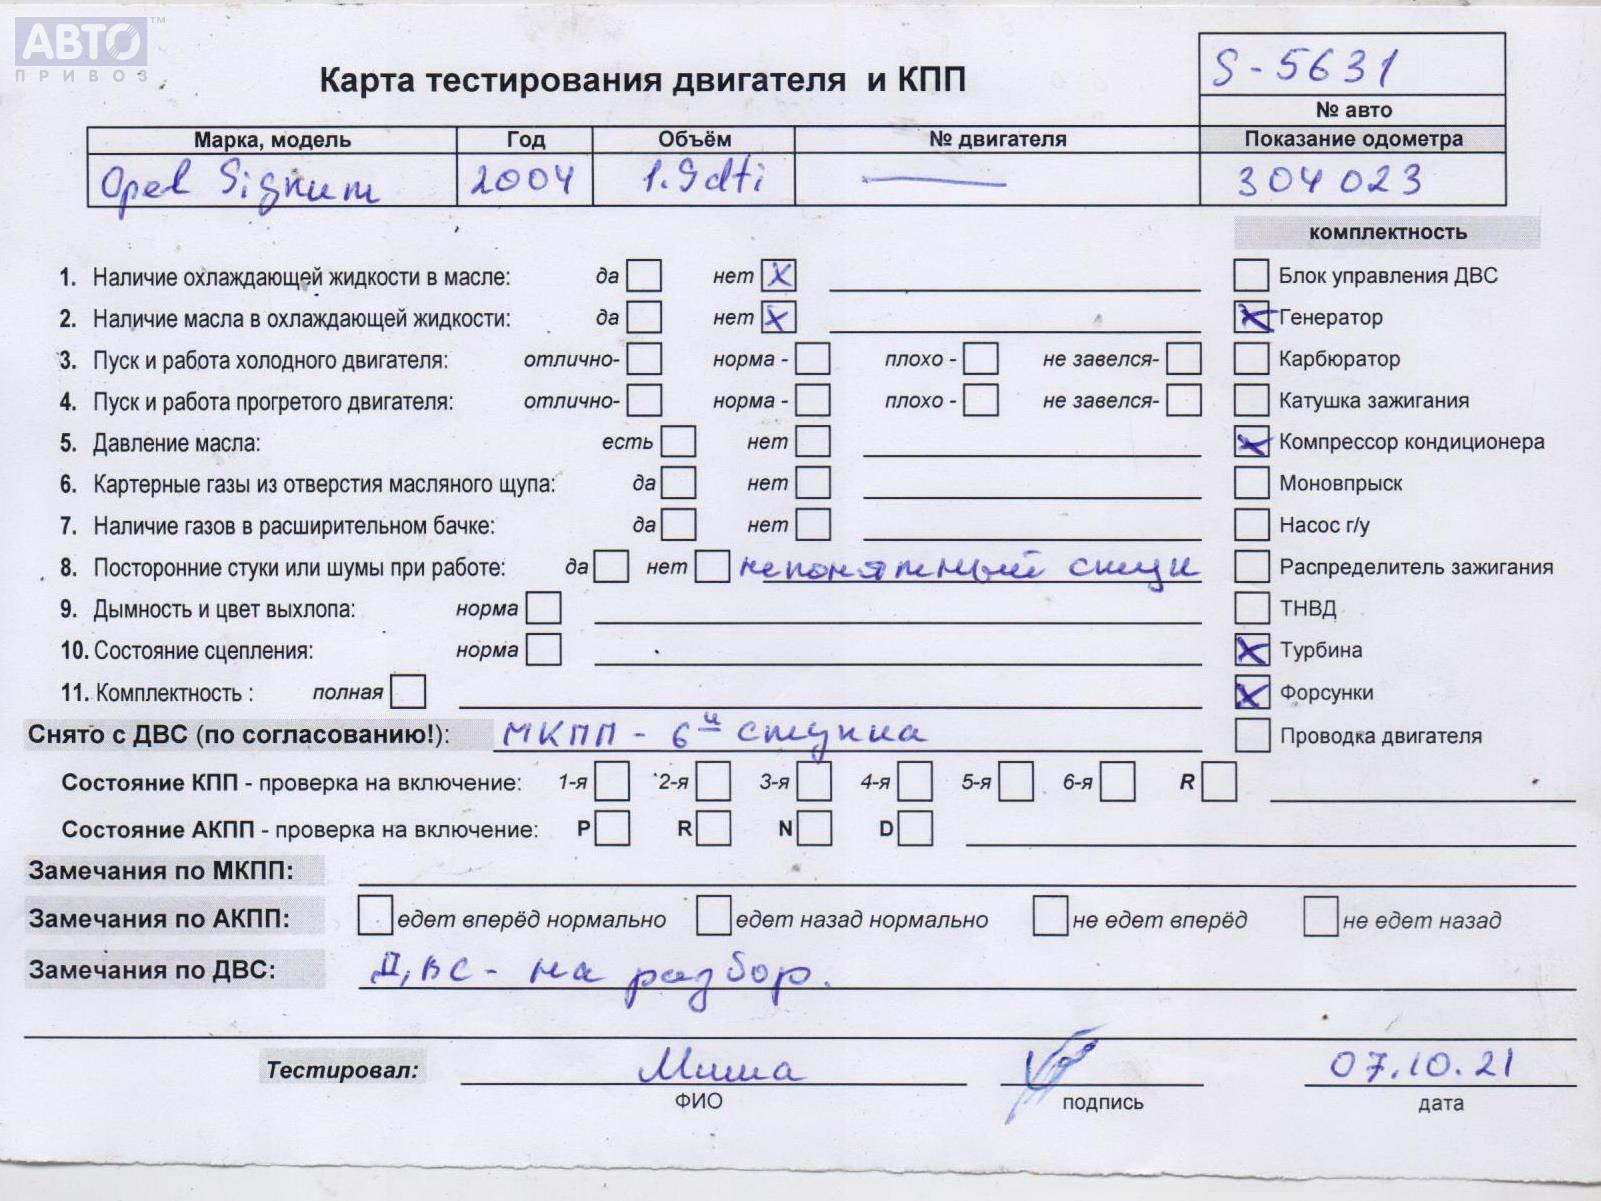 АВТО™
ПРИВОЗ
Карта тестирования двигателя и КПП
S-5631
№ авто
Марка, модель Год Объём № двигателя Показание одометра
Opel Signum 2004 1.9dti — 304023
комплектность
1. Наличие охлаждающей жидкости в масле: да нет X Блок управления ДВС
2. Наличие масла в охлаждающей жидкости: да нет X X Генератор
3. Пуск и работа холодного двигателя: отлично- норма - плохо - не завелся- Карбюратор
4. Пуск и работа прогретого двигателя: отлично- норма - плохо - не завелся- Катушка зажигания
5. Давление масла: есть нет X Компрессор кондиционера
6. Картерные газы из отверстия масляного щупа: да нет Моновпрыск
7. Наличие газов в расширительном бачке: да нет Насос г/у
8. Посторонние стуки или шумы при работе: да нет непонятный стук Распределитель зажигания
9. Дымность и цвет выхлопа: норма ТНВД
10. Состояние сцепления: норма X Турбина
11. Комплектность : полная X Форсунки
Снято с ДВС (по согласованию!): МКПП - 6и ступка Проводка двигателя
Состояние КПП - проверка на включение: 1-я 2-я 3-я 4-я 5-я 6-я R
Состояние АКПП - проверка на включение: P R N D
Замечания по МКПП:
Замечания по АКПП: едет вперёд нормально едет назад нормально не едет вперёд не едет назад
Замечания по ДВС: ДВС - на разбор.
Тестировал: Миша 07.10.21
ФИО подпись дата